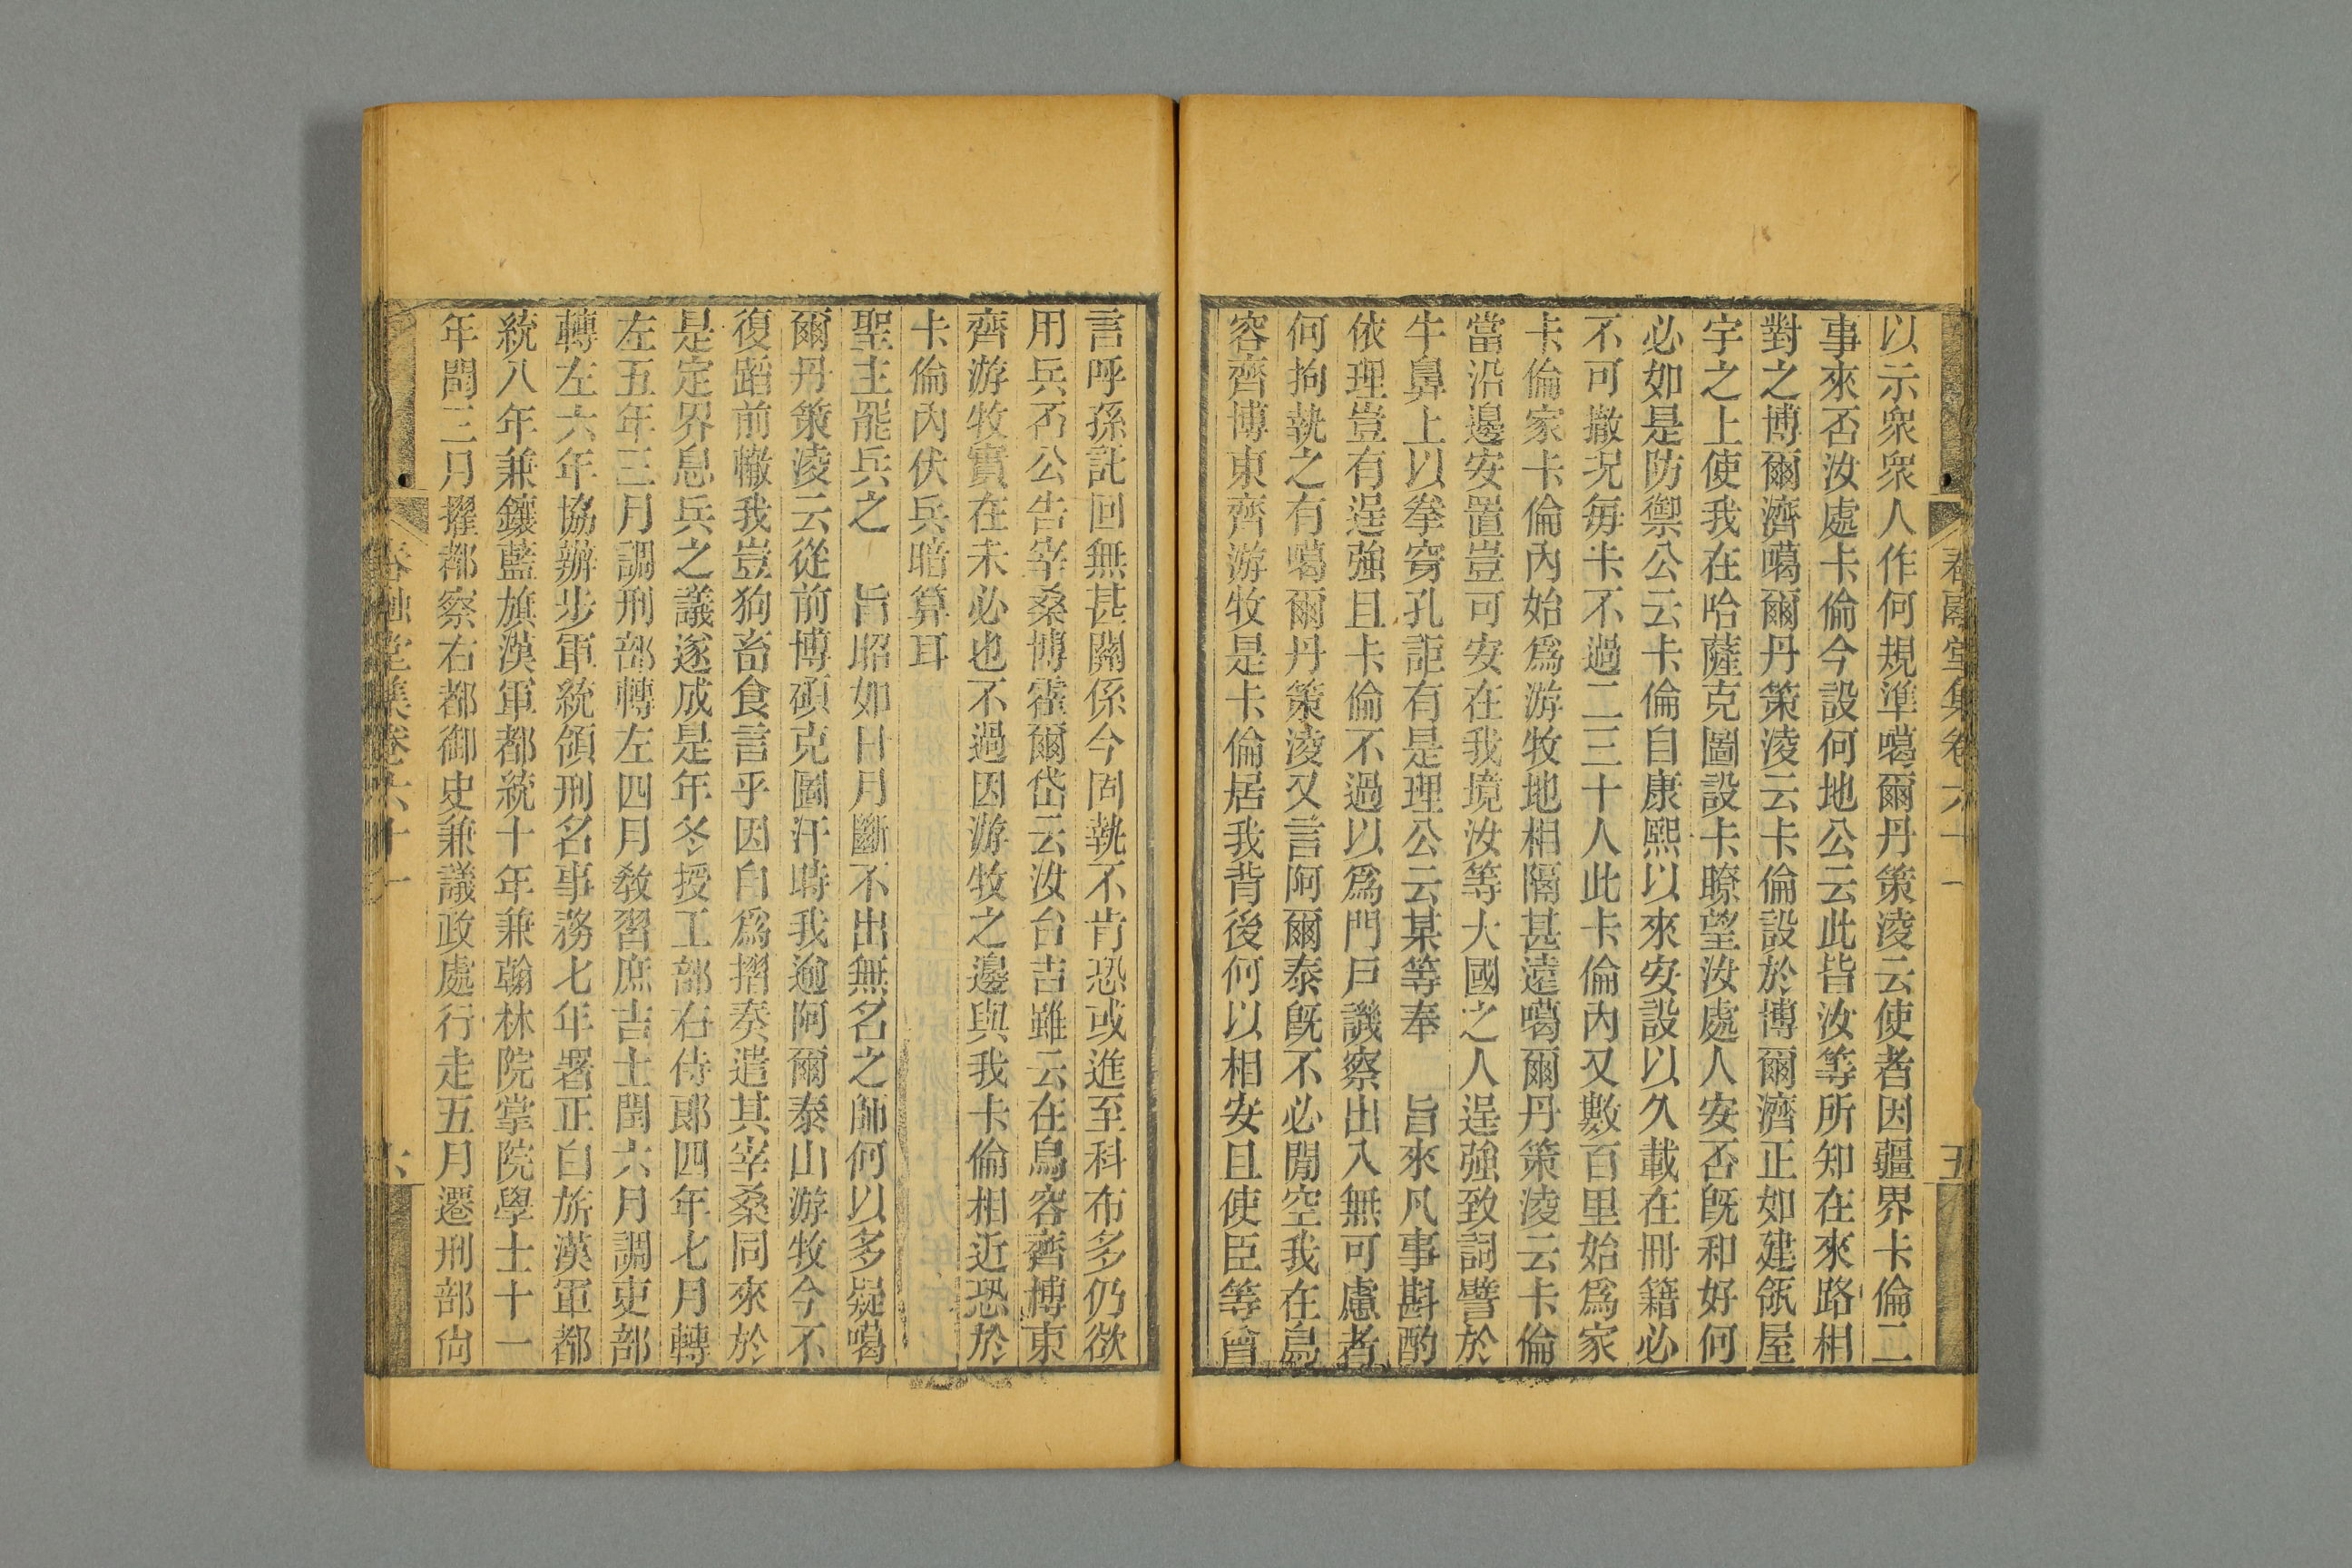 春融堂集卷六十一
五
以示衆衆人作何規準噶爾丹策淩云使者因疆界卡倫二
事來否汝處卡倫今設何地公云此皆汝等所知在來路相
對之博爾濟噶爾丹策淩云卡倫設於博爾濟正如建瓴屋
宇之上使我在哈薩克圖設卡瞭望汝處人安否旣和好何
必如是防禦公云卡倫自康熙以來安設以久載在冊籍必
不可撤况每卡不過二三十人此卡倫內又數百里始爲家
卡倫家卡倫內始爲游牧地相隔甚遠噶爾丹策淩云卡倫
當沿邊安置豈可安在我境汝等大國之人逞強致詞譬於
牛鼻上以拳穿孔詎有是理公云某等奉　旨來凡事斟酌
依理豈有逞強且卡倫不過以爲門戶譏察出入無可慮者
何拘執之有噶爾丹策淩又言阿爾泰旣不必閒空我在烏
容齊博東齊游牧是卡倫居我背後何以相安且使臣等曾
言呼孫託回無甚關係今固執不肯恐或進至科布多仍欲
用兵否公告宰桑博霍爾岱云汝台吉雖云在烏容齊博東
齊游牧實在未必也不過因游牧之邊與我卡倫相近恐於
卡倫內伏兵暗算耳
聖主罷兵之　旨昭如日月斷不出無名之師何以多疑噶
爾丹策淩云從前博碩克圖汗時我逾阿爾泰山游牧今不
復蹈前轍我豈狗畜食言乎因自爲摺奏遣其宰桑同來於
是定界息兵之議遂成是年冬授工部右侍郞四年七月轉
左五年三月調刑部轉左四月敎習庶吉士閏六月調吏部
轉左六年協辦步軍統領刑名事務七年署正白旂漢軍都
統八年兼鑲藍旗漢軍都統十年兼翰林院掌院學士十一
年閏三月擢都察右都御史兼議政處行走五月遷刑部尙
春融堂集卷六十一
六